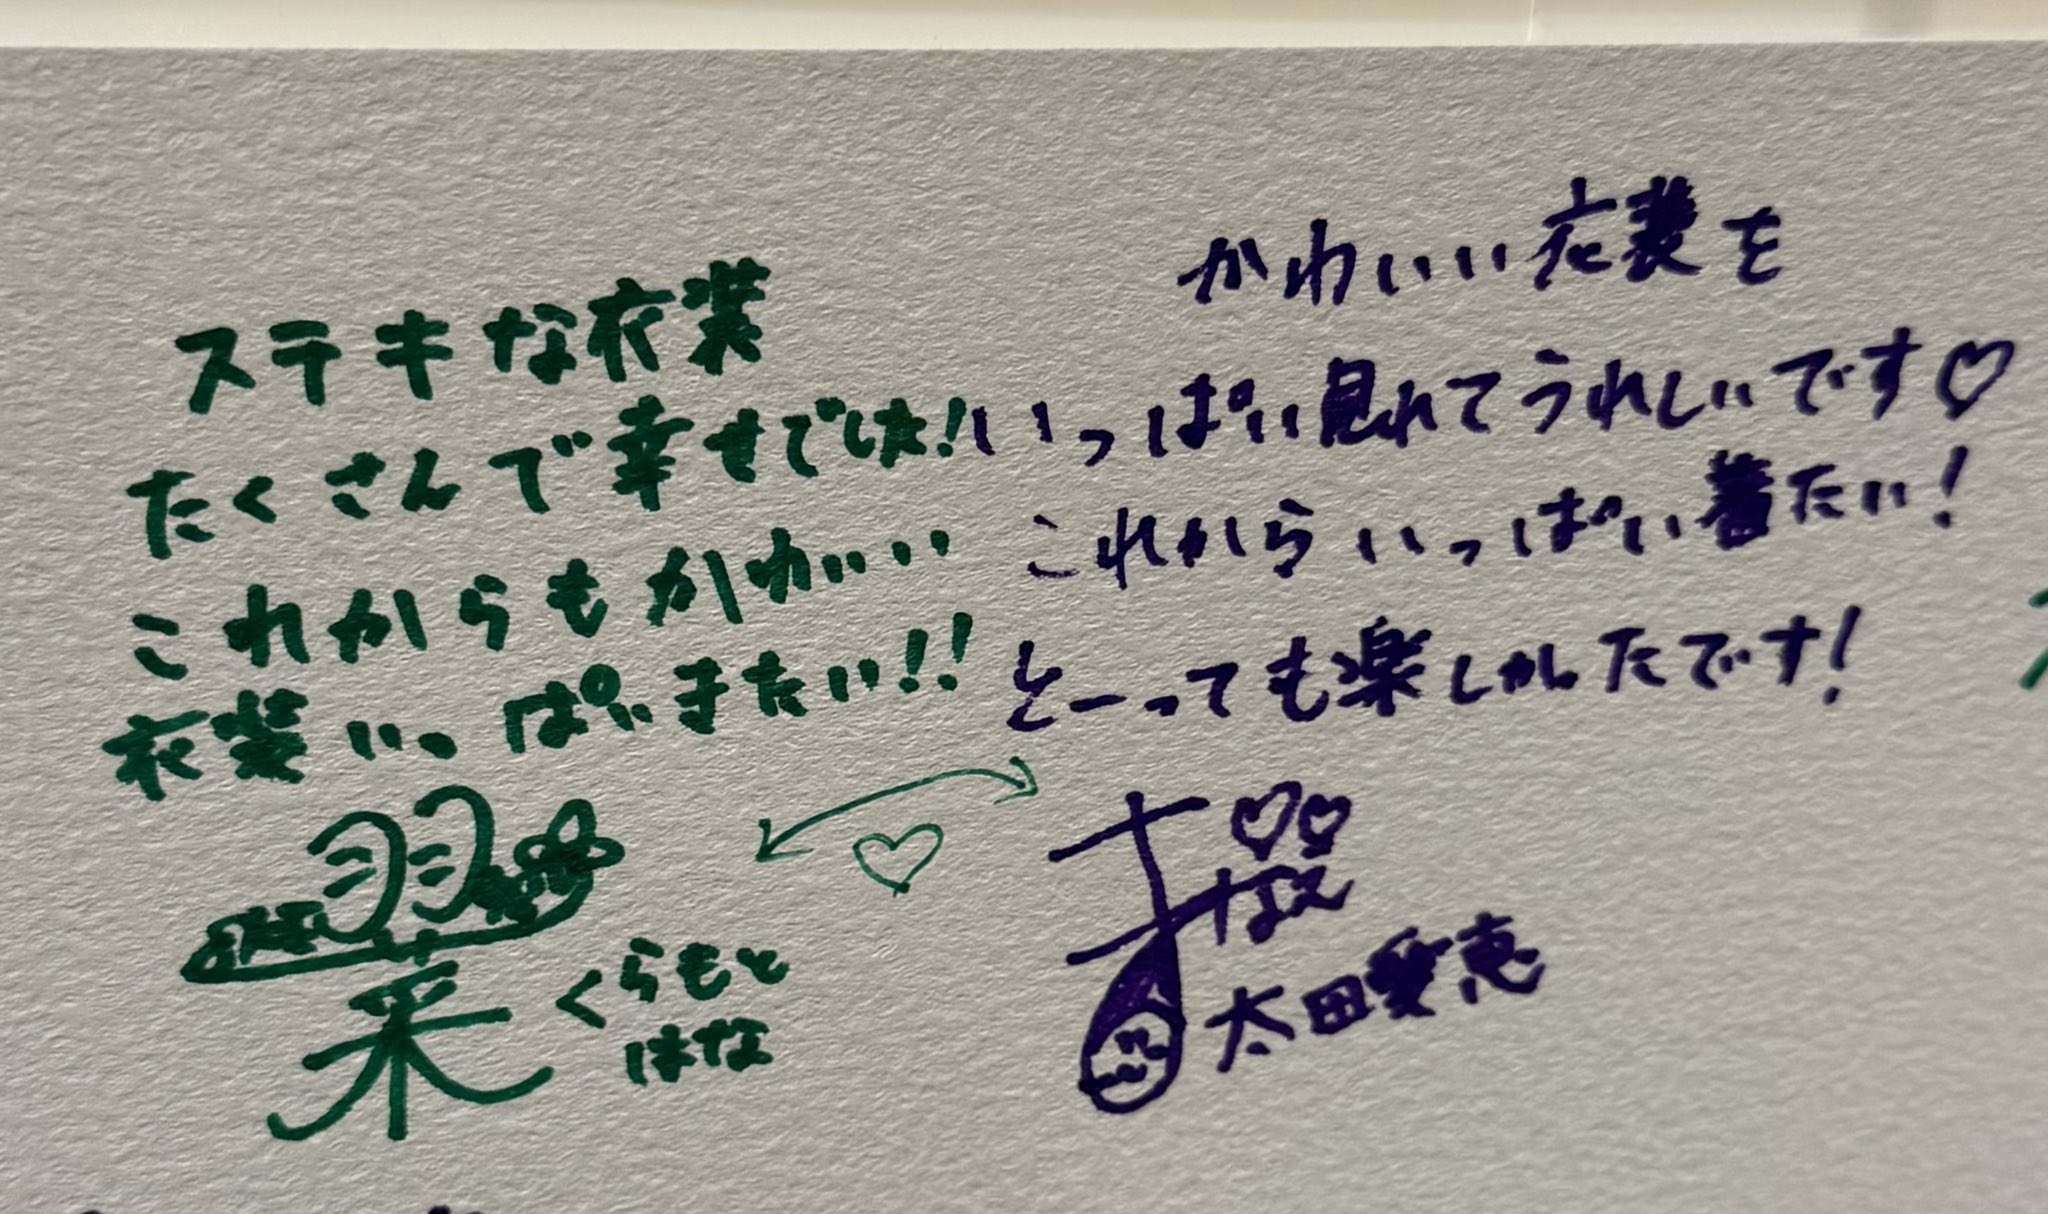 ステキな衣装
たくさんで幸せでした!
これからもかわいい
衣装いっぱいきたい!!
羽菜
くらもと
はな
かわいい衣装を
いっぱい見れてうれしいです♡
これからいっぱい着たい!
とーっても楽しかったです!
まなえ
太田愛恵